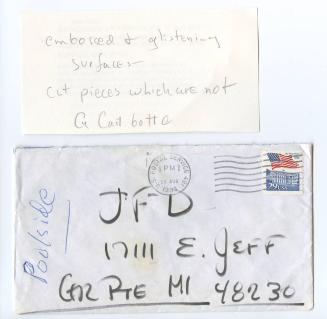 embossed & glistening
surfaces
cut pieces which are not
G Cailbotte
Poolside
PM
29
USA
JFD
17111 E. JEFF
GR PTE MI 48230